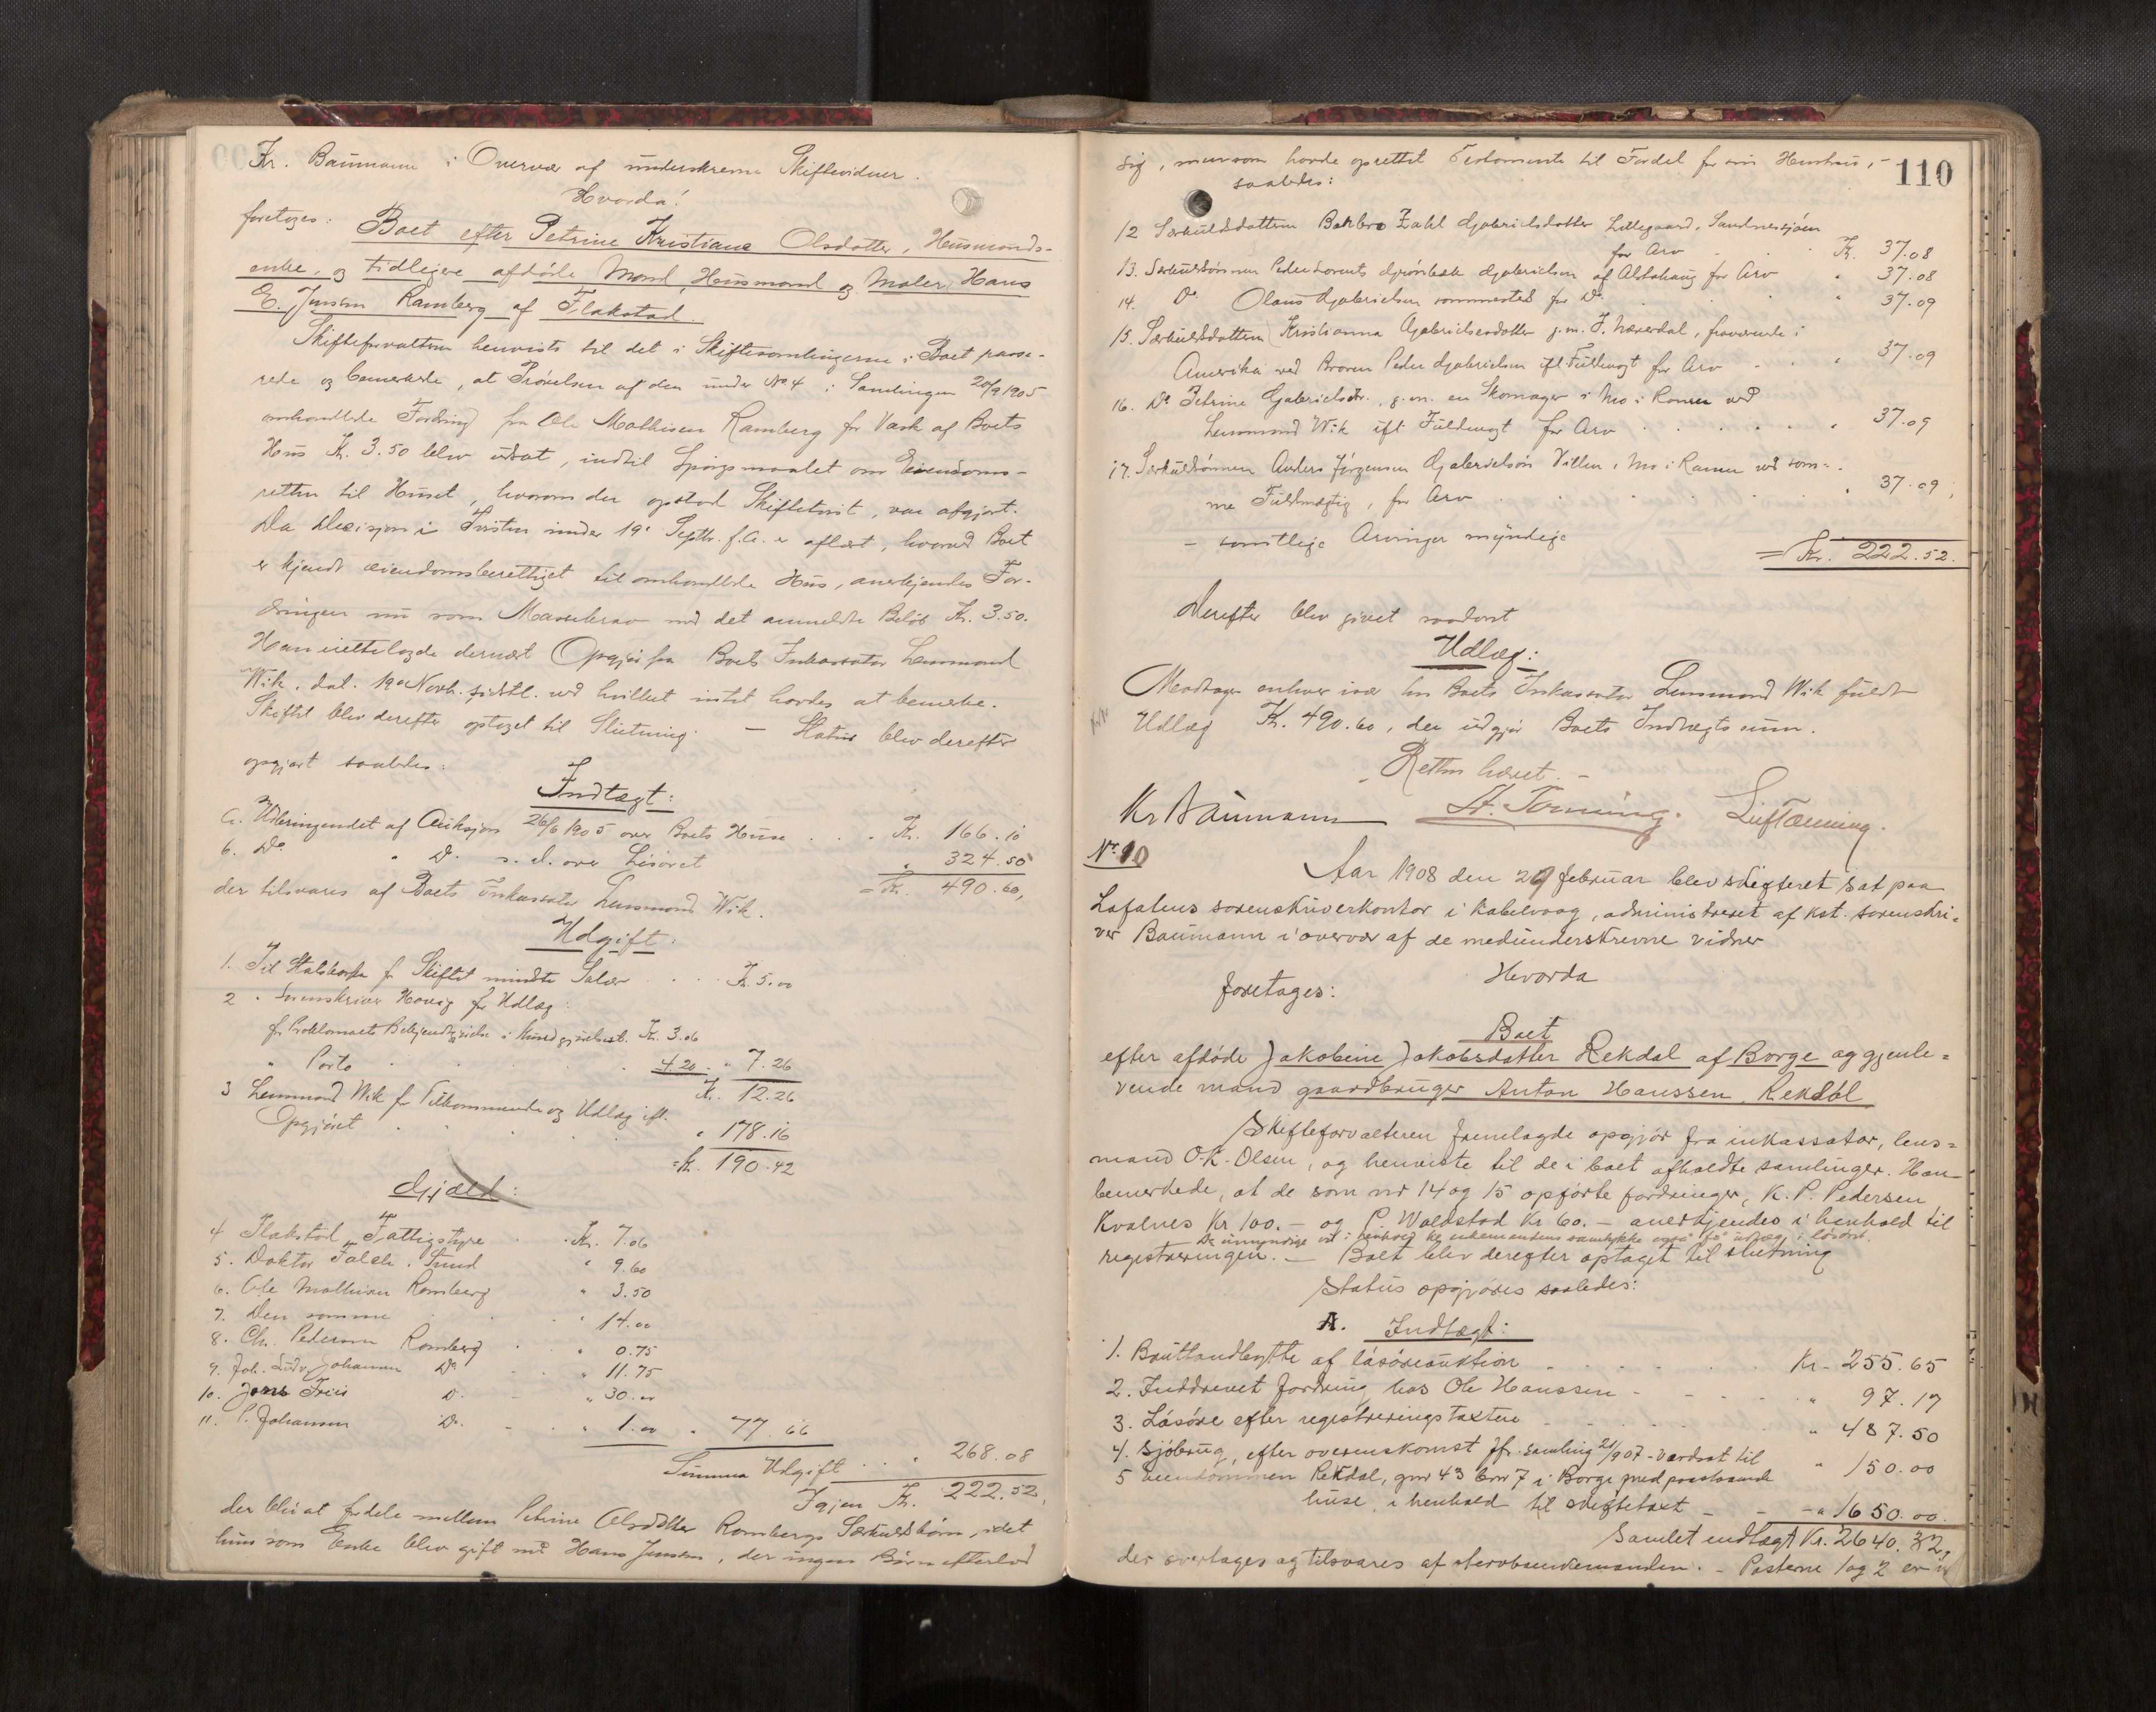 Kr. Baumann i Overvær af underskrevne Skiftevidner.
Hvorda!
foretoges: Boet efter Petrine Kristiane Olsdatter, Husmands-
enke, og tidligere afdøde Mand, Husmand og Maler Hans
E. Jensen Ramberg af Flakstad.
Skifteforvalteren henviste til det i Skiftesamlingerne i Boet passe-
rede og bemærkede, at Prøvelsen af den under No 4 i Samlingen 20/9 1905
omhandlede Fordring fra Ole Mathisen Ramberg for Vask af Boets
Hus Kr. 3.50 blev udsat, indtil Spørgsmaalet om Eiendoms-
retten til Huset, hvorom der opstod Skiftetvist, var afgjort.
Da Decisjon i Tvisten under 19de Septbr. f.A. er aflæst, hvorved Boet
er kjendt eiendomsberettiget til omhandlede Hus, anerkjendes For-
dringen nu som Massekrav med det anmeldte Beløb Kr. 3.50.
Han irettelagde dernæst Opgjør fra Boets Inkassator Lensmand
Wik, dat. 19de Novb. sidstl. ved hvilket intet havdes at bemerke.
Skiftet blev derefter optaget til Slutning. — Status blev derefter
opgjort saaledes:
Indtægt:
a. Udbringendet af Auksjon 26/6 1905 over Boets Huse . . . Kr. 166.10
b. Do " Do s. d. over Løsøret " 324.50
= Kr. 490.60,
der tilsvares af Boets Inkassator Lensmand Wik.
Udgift:
1. Til Statskassen for Skiftet mindste Salær . . . Kr. 5.00
2 " Sorenskriver Hovig for Udlæg:
for Proklamaets Bekjendtgjørelse i Kundgjørelsest. Kr. 3.06
" Porto . . . . 4.20 " 7.26
Kr. 12.26
3 Lensmand Wik for Tilkommende og Udlæg ift.
Opgjøret . . . . " 178.16
= Kr. 190.42
Gjæld:
4 Flakstad Fattigstyre . . Kr. 7.06
5. Doktor Falch, Sund " 9.60
6. Ole Mathisen Ramberg " 3.50
7. Den samme . . " 14.00
8. Ch. Pedersen Ramberg . " 0.75
9. Joh. Ludv. Johansen Do . " 11.75
10. Jens Friis D. - " 30.00
11. P. Johansen Do. - . " 1.00 " 77.66
Summa Udgift . . . " 268.08
Igjen Kr. 222.52,
der blir at fordele mellem Petrine Olsdatter Rambergs Særkuldsbørn, idet
hun som Enke blev gift med Hans Jensen, der ingen Børn efterlod
110
sig, men som havde oprettet Testamente til Fordel for sin Hustru, -
saaledes:
12 Særkuldsdatteren Barbro Zahl Gabrielsdatter Lillegaard, Sandnessjøen
for Arv . Kr. 37.08
13. Særkuldsønnen Peder Lorents Grønbech Gabrielsen af Alstahaug for Arv " 37.08
14. Do Olaus Gabrielsen sammested for Do. . . . " 37.09
15. Særkuldsdatteren Kristianna Gabrielsdatter g.m. J. Næverdal, fraværende i
Amerika ved Broren Peder Gabrielsen ifl. Fuldmagt for Arv . . " 37.09
16. Do Petrine Gabrielsdtr., g.m. en Skomager i Mo i Ranen ved
Lensmand Wik ift. Fuldmagt for Arv . . . . . . " 37.09
17. Særkuldsønnen Anders Jørgensen Gabrielsen Villen, Mo i Ranen ved sam-
me Fuldmægtig, for Arv . . . . . " 37.09,
- samtlige Arvinger myndige
= Kr. 222.52.
Derefter blev givet saadant
Udlæg:
Modtager enhver især hos Boets Inkassator Lensmand Wik fuldt
Udlæg Kr. 490.60, der udgjør Boets Indtægtssum.
Retten hævet. -
Kr Baumann St. Tønning. Luf Tønning.
Nr. 10
Aar 1908 den 29 februar blev skifteret sat paa
Lofotens sorenskriverkontor i Kabelvaag, administreret af kst. sorenskri-
ver Baumann i overvær af de medunderskrevne vidner
Hvorda
foretages:
Boet
efter afdøde Jakobine Jakobsdatter Rekdal af Borge og gjenle-
vende mand gaardbruger Anton Hanssen Rekdal
Skifteforvalteren fremlagde opgjør fra inkassator, lens-
mand O. K. Olsen, og henviste til de i boet afholdte samlinger. Han
bemerkede, at de som nr 14 og 15 opførte fordringer, K. P. Pedersen
Kvalnes Kr 100. - og P. Woldstad Kr 60. - anerkjendes i henhold til
De umyndige vil i henhold til enkemandens samtykke også få utlæg i løsøre.
registreringen. - Boet blev derefter optaget til slutning
Status opgjøres saaledes:
A. Indtægt:
1. Bruttoudbytte af løsøreauktion . . . . . Kr. 255.65
2. Inddrevet fordring hos Ole Hanssen - - - - " 97.17
3. Løsøre efter registreringstaxten . . . . " 487.50
4. Sjøbrug, efter overenskomst jfr. samling 21/9 07 - værdsat til " 150.00
5 Eiendommen Rekdal, gnr 43 bnr 7 i Borge med paastaaende
huse, i henhold til skiftetaxt - - - " 1650.00.
Samlet indtægt Kr. 2640.32,
der overtages og tilsvares af sterbbøenkemanden. - Posterne 1 og 2 er